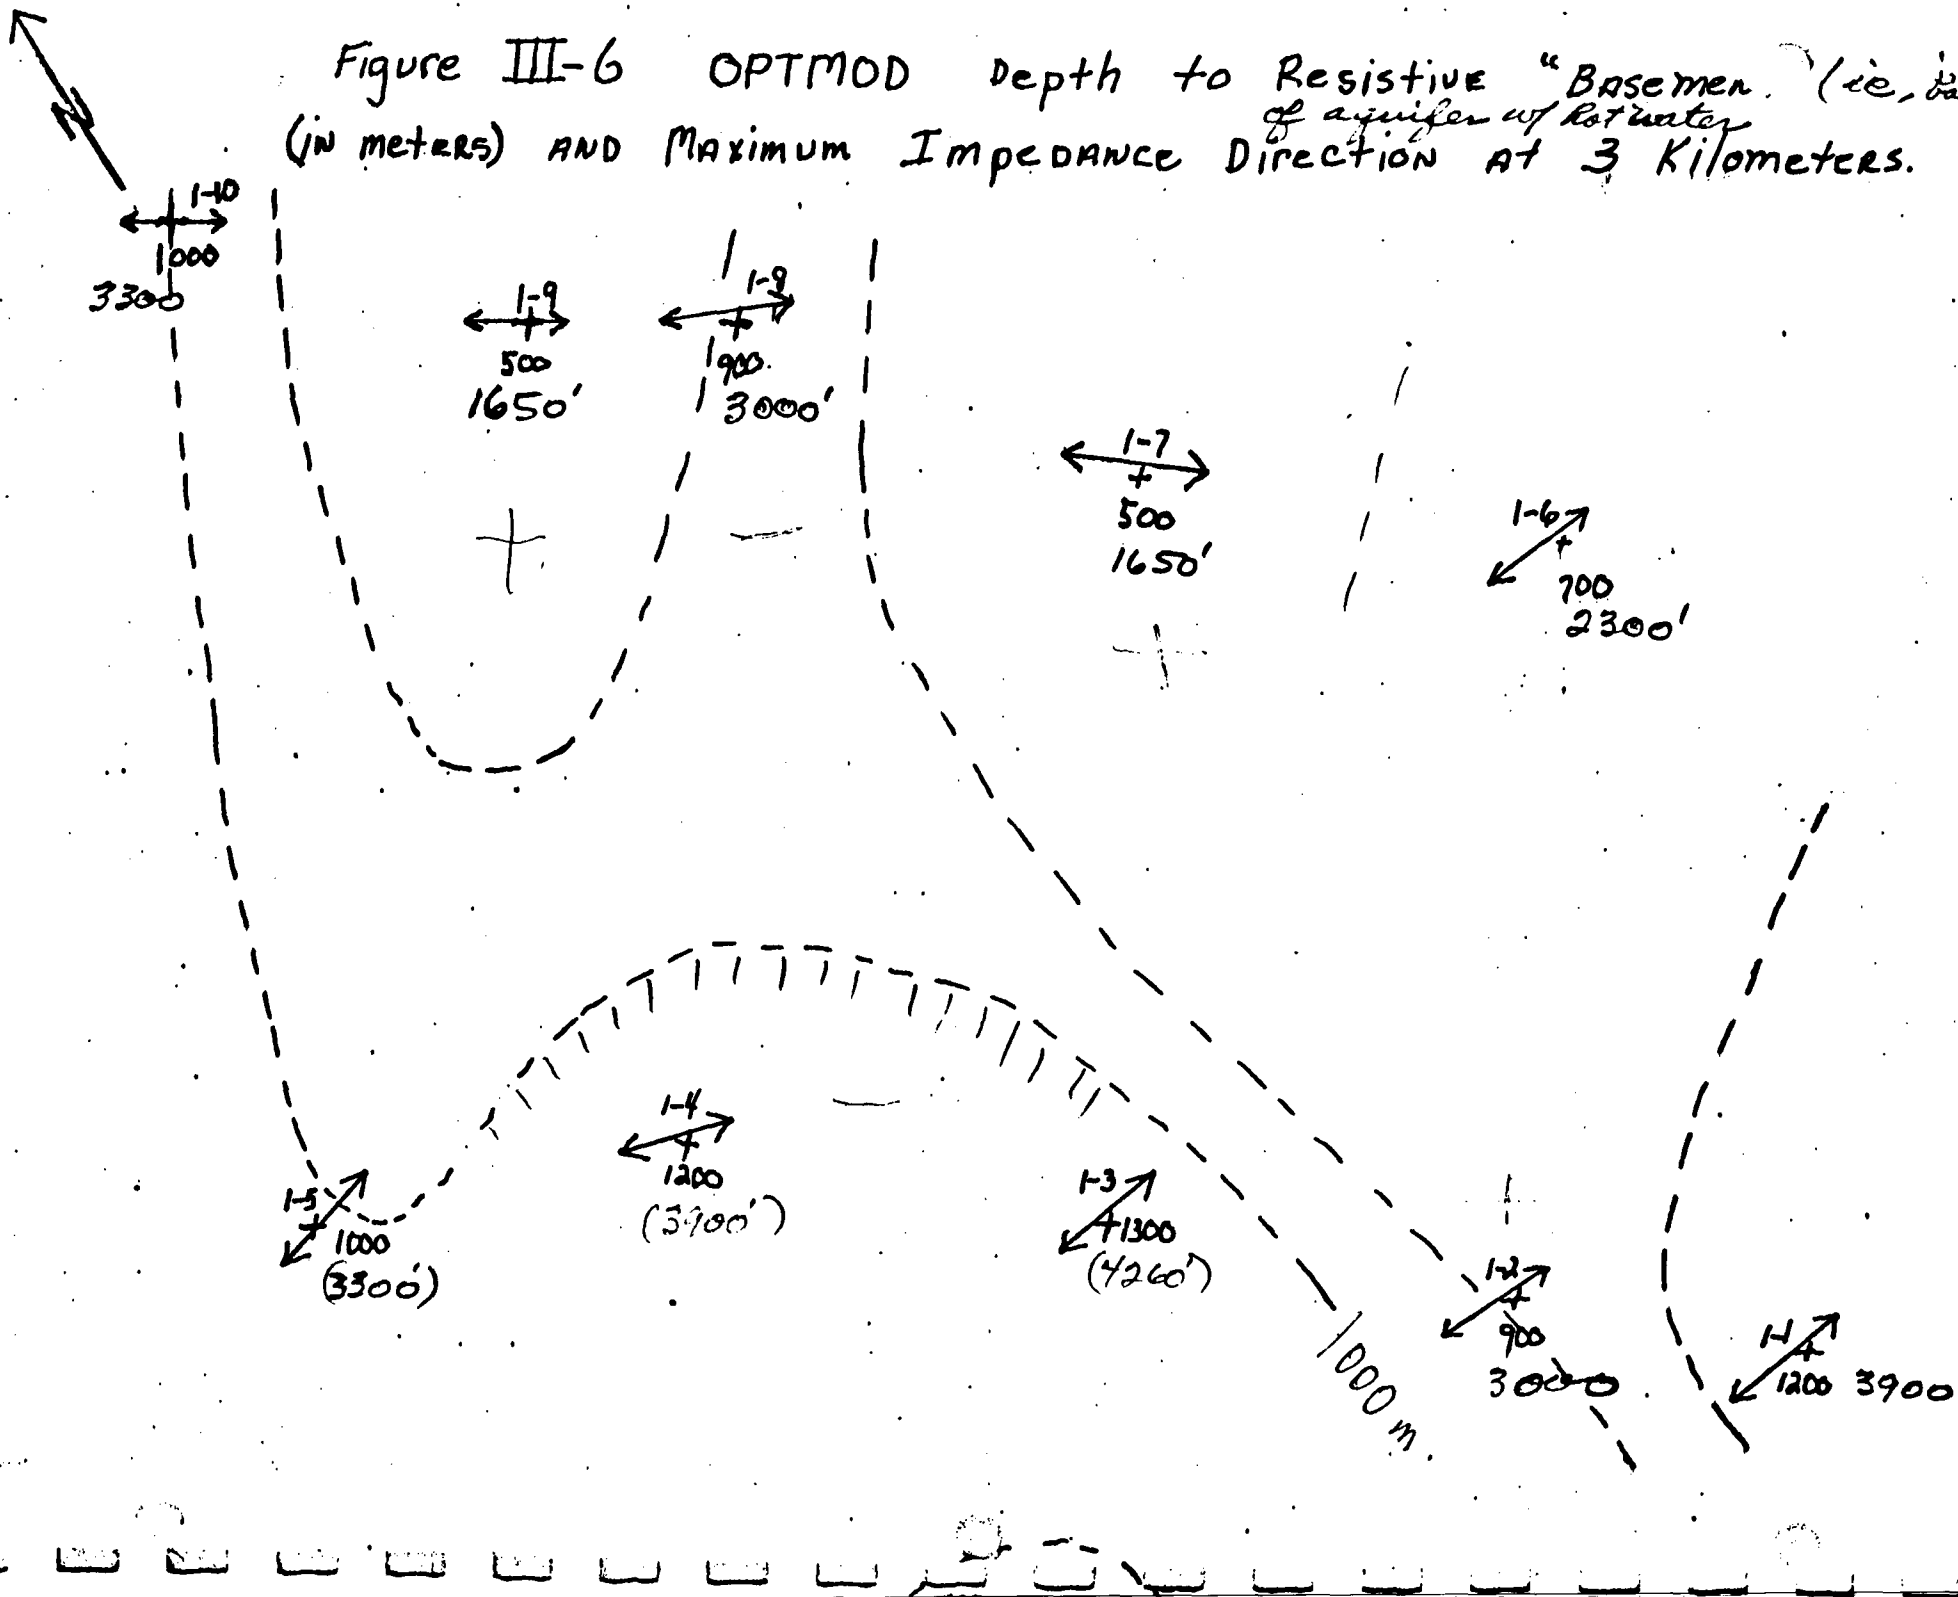 Figure III-6 OPTMOD Depth to Resistive "Basemen. (ie, ba
of aquifer w/ hot water
(in meters) AND Maximum Impedance Direction At 3 Kilometers.
N
1-10
1000
3300
1-9
500
1650'
1-8
900
3000'
1-7
500
1650'
1-6
700
2300'
1-5
1000
(3300')
1-4
1200
(3900')
1-3
1300
(4260')
1-2
900
3000
1-1
1200 3900
1000 m.